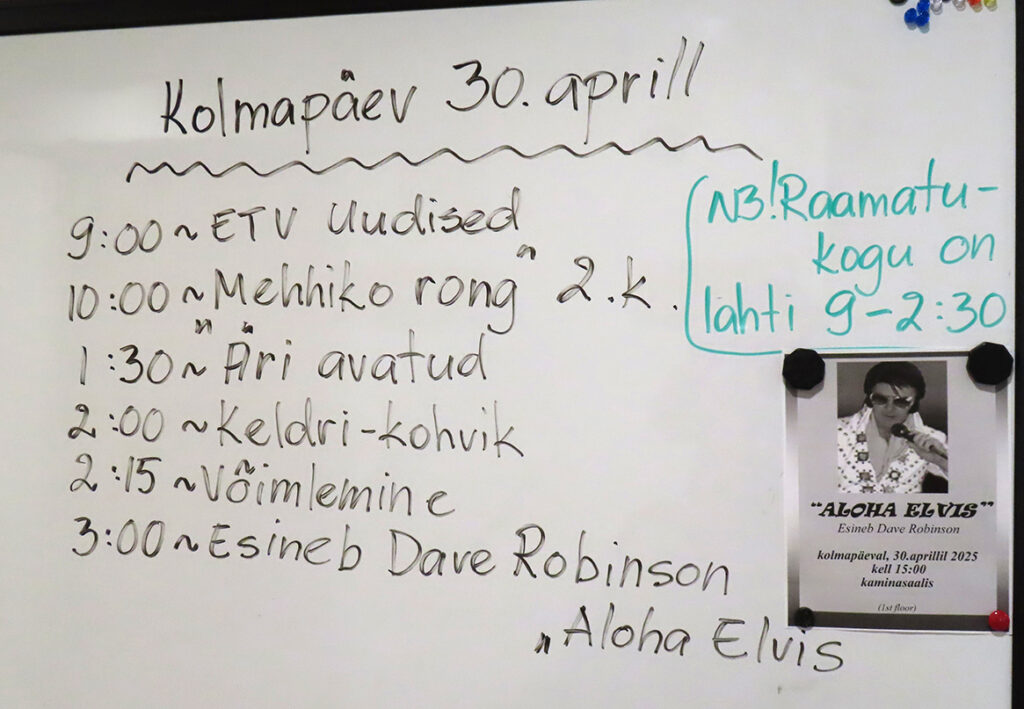 Kolmapäev 30. aprill
9:00 ~ ETV Uudised
10:00 ~ „Mehhiko rong" 2.k.
1:30 ~ Äri avatud
2:00 ~ Keldri-kohvik
2:15 ~ Võimlemine
3:00 ~ Esineb Dave Robinson
„Aloha Elvis
NB! Raamatu-
kogu on
lahti 9-2:30
"ALOHA ELVIS"
Esineb Dave Robinson
kolmapäeval, 30.aprillil 2025
kell 15:00
kaminasaalis
(1st floor)